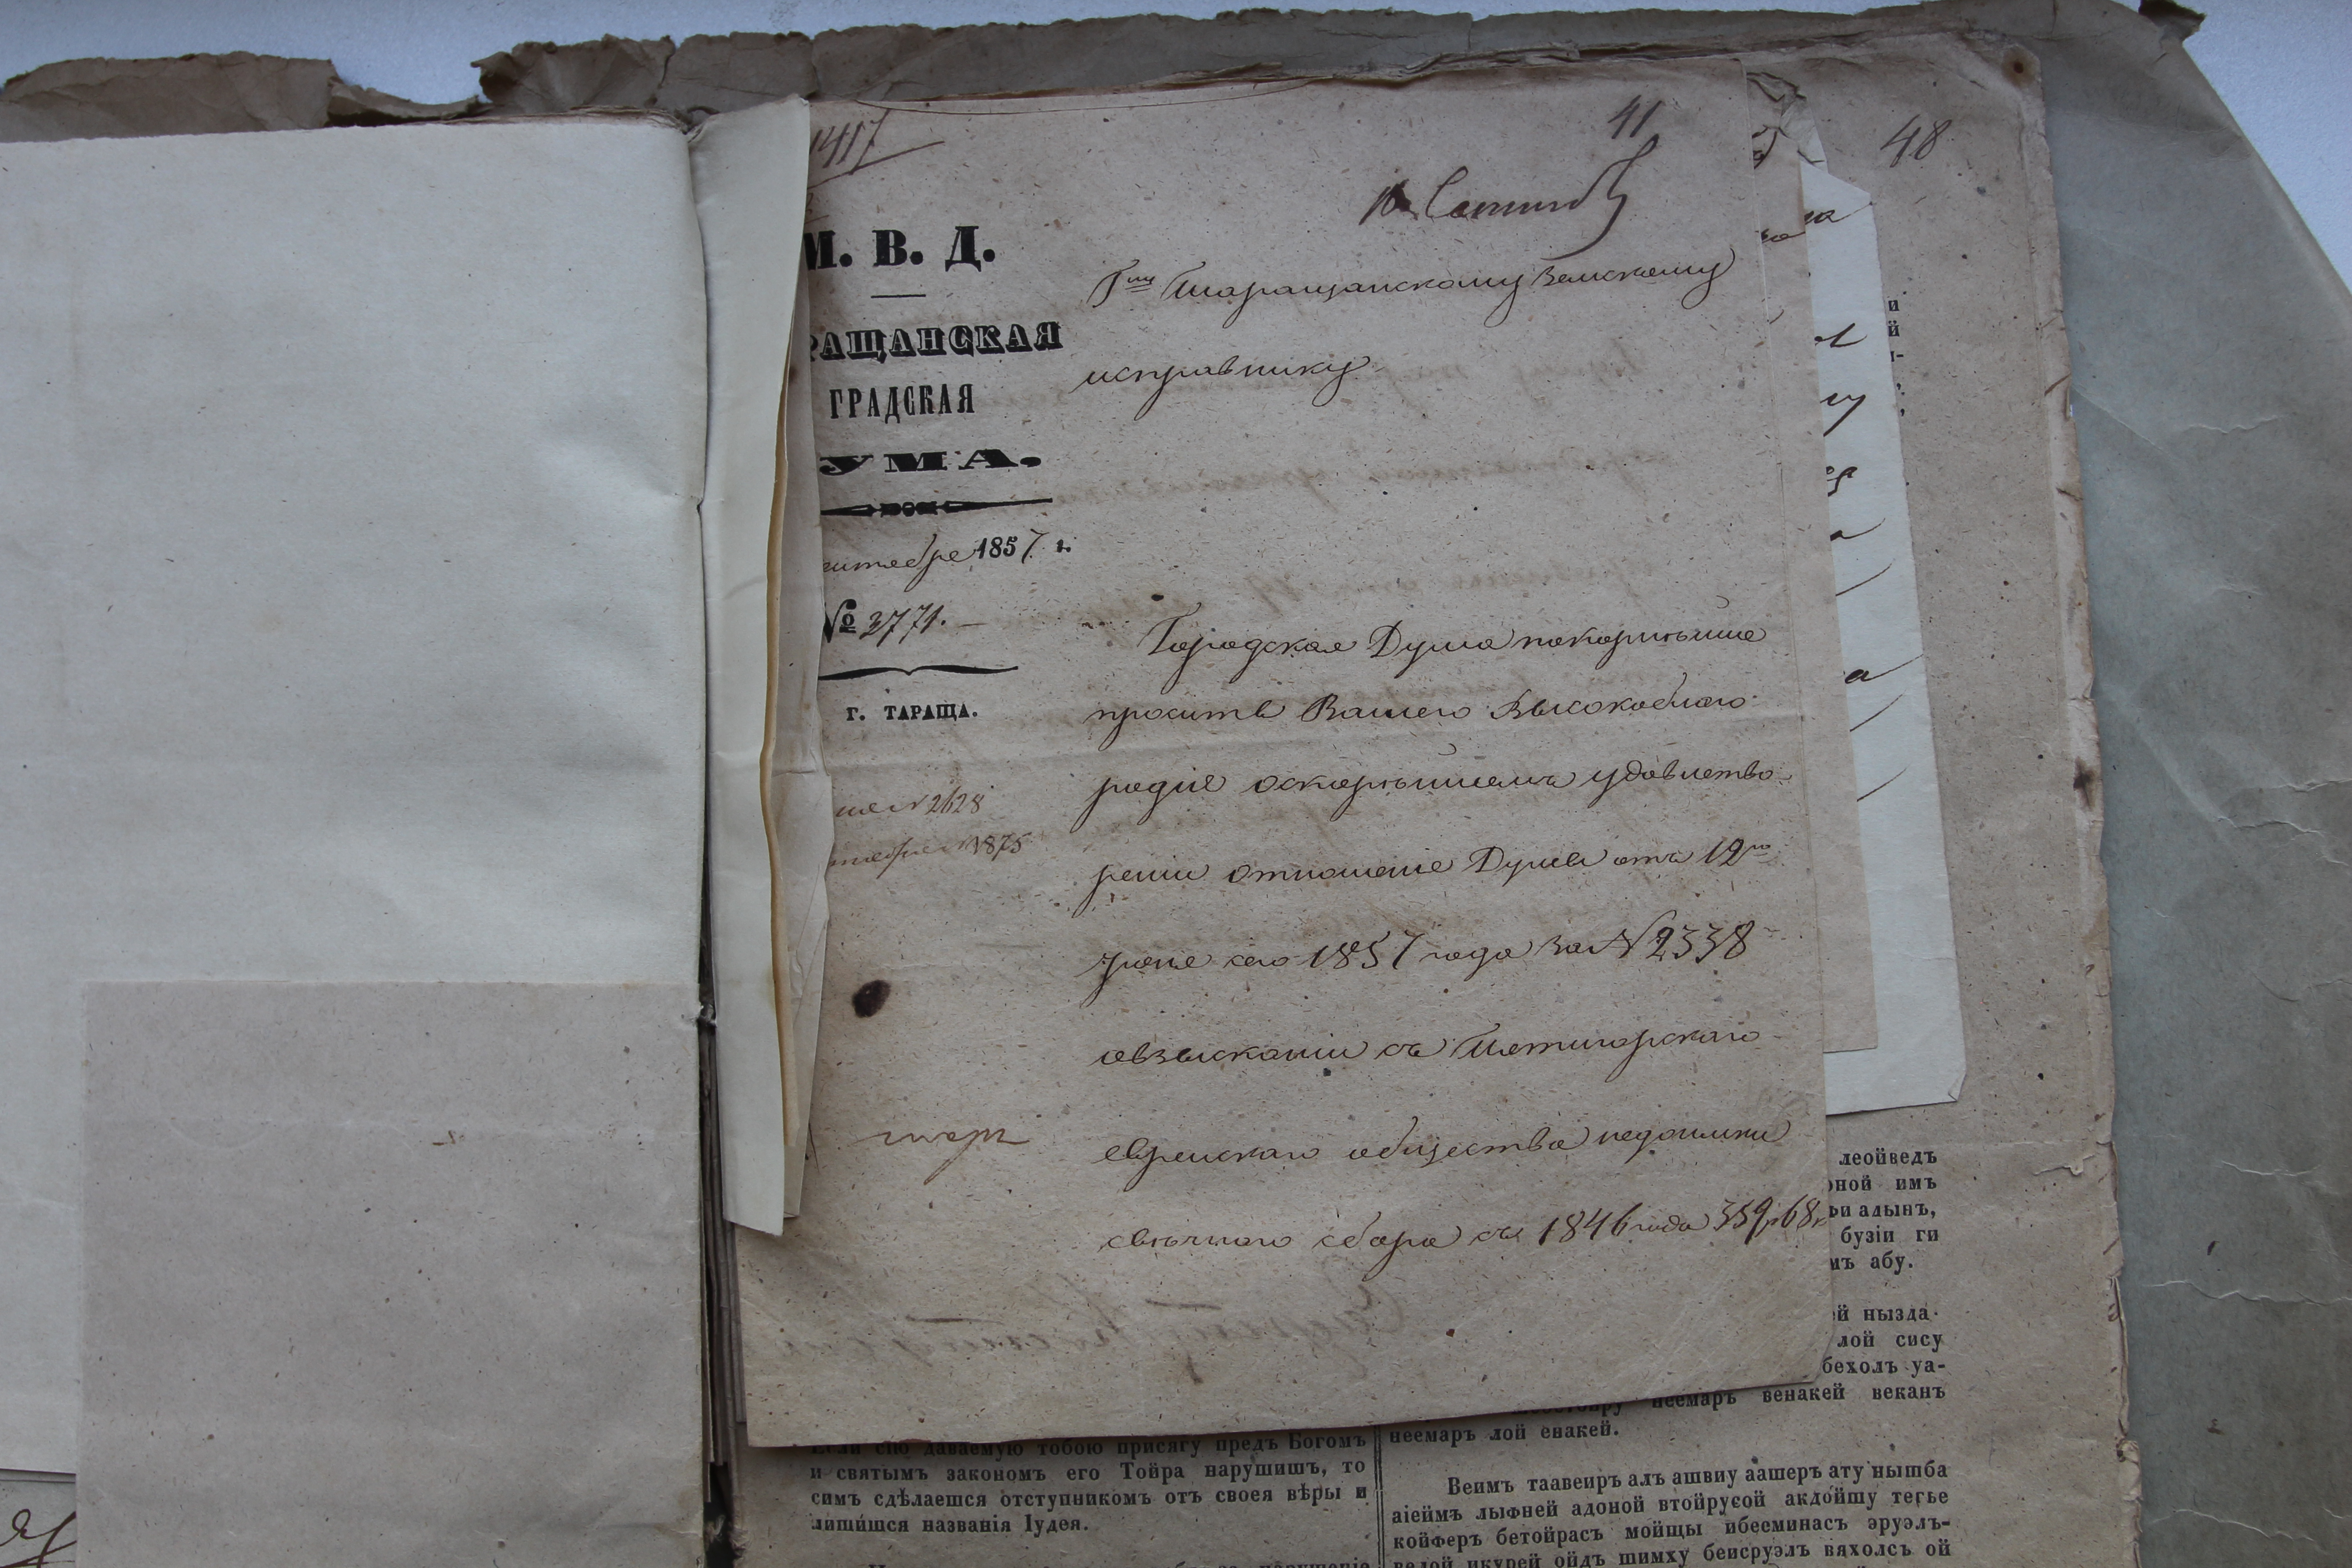 1417
41
48
М. В. Д.
РАЩАНСКАЯ
ГРАДСКАЯ
УМА.
1857 г.
№ 3771.
Г. ТАРАЩА.
2628
1875
Г<sup>ну</sup> Таращанскому Земскому
исправнику
Городская Дума покорнѣйше
проситъ Вашего Высокобл͏аго-
родіе оскорѣйшемъ удовлетво-
реніи отношеніе Думы отъ 12<sup>го</sup>
сего 1857 года за № 2338
овзысканіи съ Пятигорскаго
еврейскаго общества недоимки
свѣчнаго сбора съ 1846 года 359 р 68 к
леойведъ
оной имъ
фи адынъ,
бузіи ги
мъ абу.
ей нызда-
лой сису
бехолъ уа-
неемаръ венакей веканъ
неемаръ лой енакей.
Если сію даваемую тобою присягу предъ Богомъ
и святымъ закономъ его Тойра нарушишъ, то
симъ сдѣлаешся отступникомъ отъ своея вѣры и
лишишся названія Іудея.
Веимъ таавеиръ алъ ашвиу аашеръ ату нышба
аіеймъ лыфней адоной втойрусой акдойшу тегье
койферъ бетойрасъ мойщы ибееминасъ эруэлъ-
велой икурей ойдъ шимху беисруэлъ вяхолсъ ой